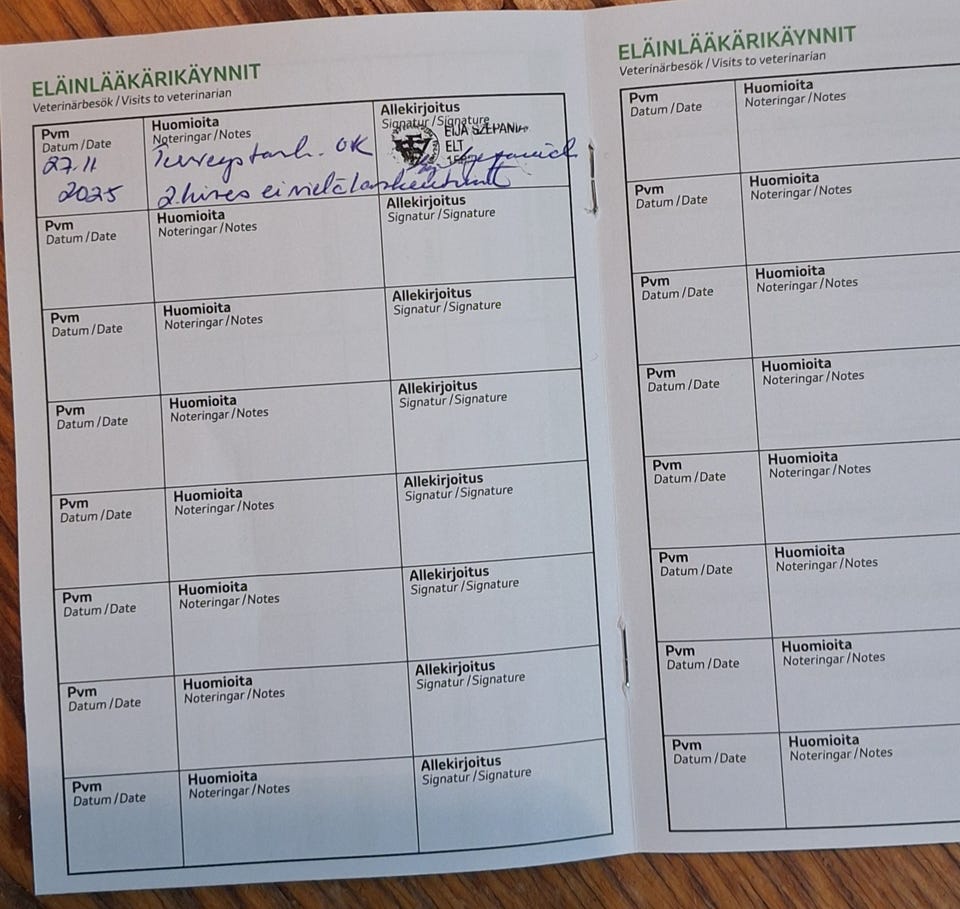 ELÄINLÄÄKÄRIKÄYNNIT
Veterinärbesök / Visits to veterinarian
Pvm
Datum / Date
27.11
2025
Huomioita
Noteringar / Notes
Terveystark. OK
2. kives ei vielä laskeutunut
Allekirjoitus
Signatur / Signature
EIJA SZEPANIK
ELT
Pvm
Datum / Date
Huomioita
Noteringar / Notes
Allekirjoitus
Signatur / Signature
Pvm
Datum / Date
Huomioita
Noteringar / Notes
Allekirjoitus
Signatur / Signature
Pvm
Datum / Date
Huomioita
Noteringar / Notes
Allekirjoitus
Signatur / Signature
Pvm
Datum / Date
Huomioita
Noteringar / Notes
Allekirjoitus
Signatur / Signature
Pvm
Datum / Date
Huomioita
Noteringar / Notes
Allekirjoitus
Signatur / Signature
Pvm
Datum / Date
Huomioita
Noteringar / Notes
Allekirjoitus
Signatur / Signature
Pvm
Datum / Date
Huomioita
Noteringar / Notes
Allekirjoitus
Signatur / Signature
ELÄINLÄÄKÄRIKÄYNNIT
Veterinärbesök / Visits to veterinarian
Pvm
Datum / Date
Huomioita
Noteringar / Notes
Pvm
Datum / Date
Huomioita
Noteringar / Notes
Pvm
Datum / Date
Huomioita
Noteringar / Notes
Pvm
Datum / Date
Huomioita
Noteringar / Notes
Pvm
Datum / Date
Huomioita
Noteringar / Notes
Pvm
Datum / Date
Huomioita
Noteringar / Notes
Pvm
Datum / Date
Huomioita
Noteringar / Notes
Pvm
Datum / Date
Huomioita
Noteringar / Notes